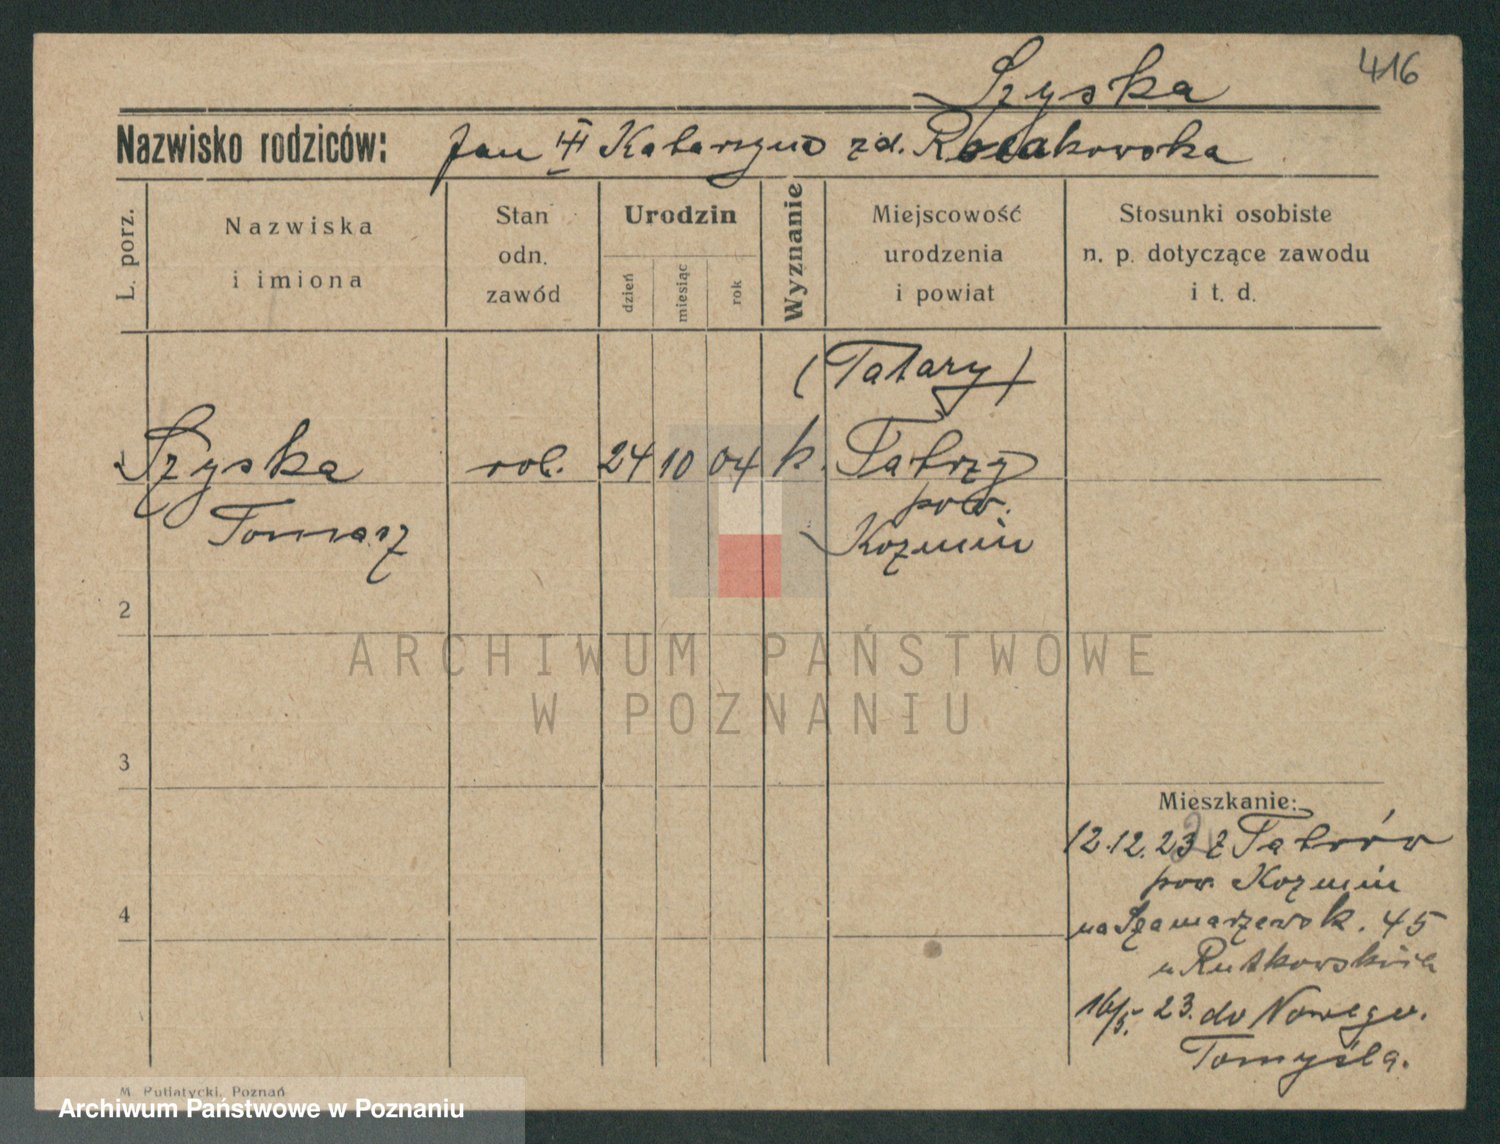 416
Szyska
Nazwisko rodziców: Jan Katarzyna zd.
L. porz.
Nazwiska i imiona
Stan odn. zawód
Urodzin
dzień
miesiąc
rok
Wyznanie
Miejscowość urodzenia i powiat
Stosunki osobiste n. p. dotyczące zawodu i t. d.
(Tatary)
1 Szyska rob. 24 10 04 k. Tatry
pow.
Tomasz Kozmin
2
ARCHIWUM PAŃSTWOWE
W POZNANIU
3
Mieszkanie:
12.12.23 z Tatrów
pow. Kozmin
na Szamarzewsk. 45
u Rutkowskich
16/5. 23. do Nowego.
Tomyśla.
4
M. Putiatycki, Poznań
Archiwum Państwowe w Poznaniu